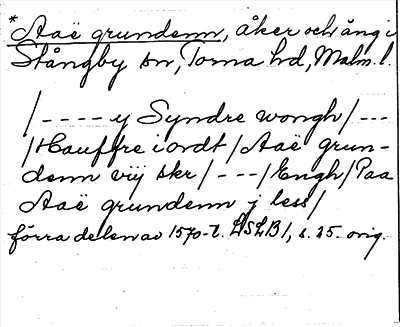 * Aaë grundenn, åker och äng i
Stångby sn, Torna hd, Malm. l.
/---- y Syndre wongh/ ---
/Hauffre iordt/ Aaë grun-
denn vij skr/ ---/Engh/Paa
Aaë grundenn j less/
förra delen av 1570-t. LSLB1, s. 25. orig.